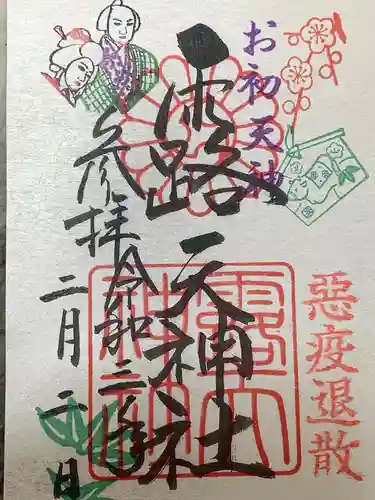 お初天神
惡疫退散
露天神社
露天神社
参拝令和二年
二月二日